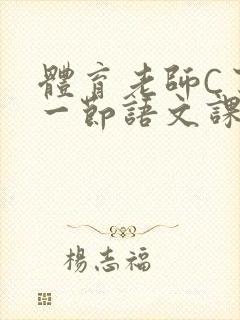 體育老師C
一節語文課
楊志福